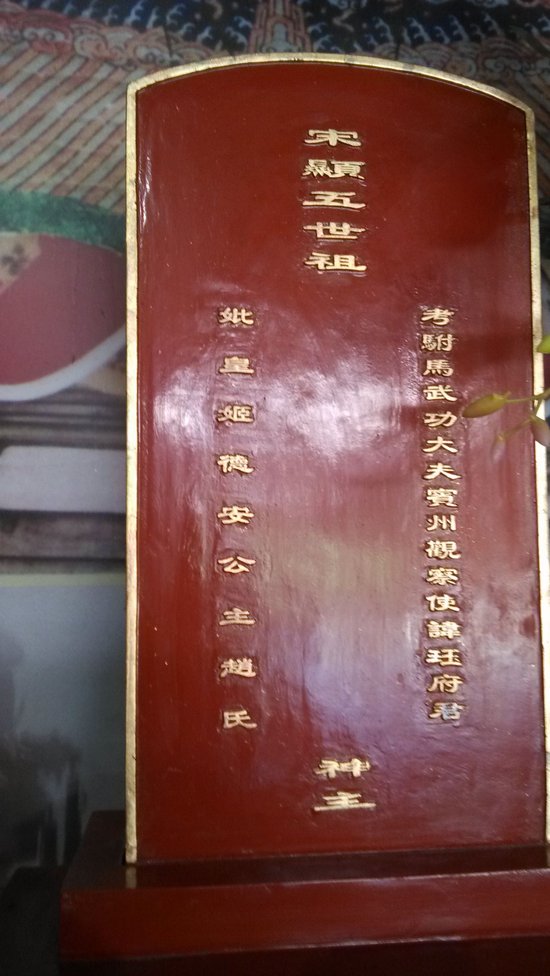 宋顯五世祖
考駙馬武功大夫賓州觀察使諱珏府君
妣皇姬德安公主趙氏
神主